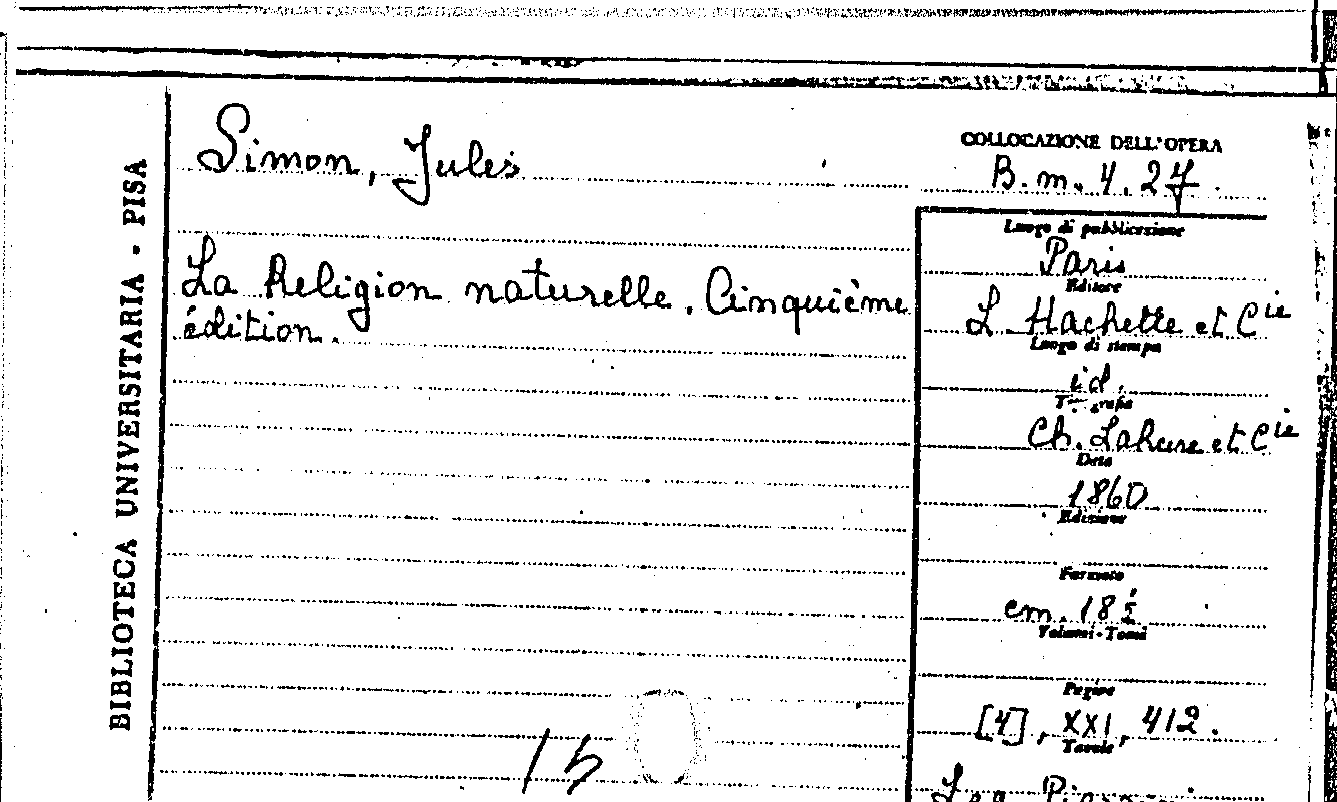 BIBLIOTECA UNIVERSITARIA - PISA
Simon, Jules
La Religion naturelle. Cinquième
édition.
15
COLLOCAZIONE DELL'OPERA
B.m.4.27.
Luogo di pubblicazione
Paris
Editore
L Hachette et Cie
Luogo di stampa
id.
Tipografia
Ch. Lahure et Cie
Data
1860
Edizione
Formato
cm. 18
Volumi - Tomi
Pagine
[4], XXI, 412.
Tavole